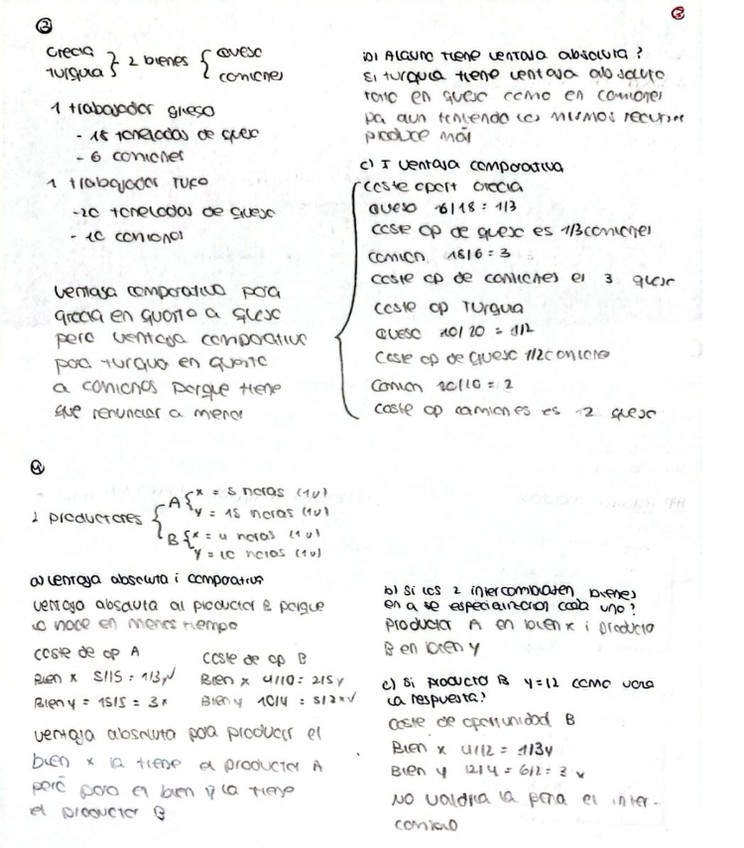 ③
Grecia
Turquia } 2 bienes { queso
camiones
1 trabajador griego
- 18 toneladas de queso
- 6 camiones
1 trabajador turco
- 20 toneladas de queso
- 10 camiones
Ventaja comparativa para
grecia en quanto a queso
pero ventaja comparativa
para turquia en quanto
a camiones porque tiene
que renunciar a menos
b) Alguno tiene ventaja absoluta?
Si turquia tiene ventaja absoluta
tanto en queso como en camiones
ya aun teniendo los mismos recursos
produce más
c) I ventaja comparativa
coste oport Grecia
Queso 6/18 = 1/3
coste op de queso es 1/3 camiones
camion 18/6 = 3
coste op de camiones es 3 queso
coste op Turquia
queso 10/20 = 1/2
coste op de queso 1/2 camiones
camion 20/10 = 2
coste op camiones es 2 queso
④
2 productores { A { x = 5 horas (1u)
y = 15 horas (1u)
B { x = 4 horas (1u)
y = 10 horas (1u)
a) ventaja absoluta i comparativa
ventaja absoluta al productor B porque
lo hace en menos tiempo
coste de op A
Bien x 5/15 = 1/3 y
Bien y = 15/5 = 3x
coste de op B
Bien x 4/10 = 2/5 y
Bien y 10/4 = 5/2 x
ventaja absoluta para producir el
bien x la tiene el productor A
però para el bien y la tiene
el productor B
b) Si los 2 intercambiaten bienes
en a se especializacion cada uno?
Productor A en bien x i producto
B en bien y
c) Si producto B y=12 como varia
la respuesta?
coste de oportunidad B
Bien x 4/12 = 1/3y
Bien y 12/4 = 6/2 = 3 x
No valdria la pena el inter-
cambio